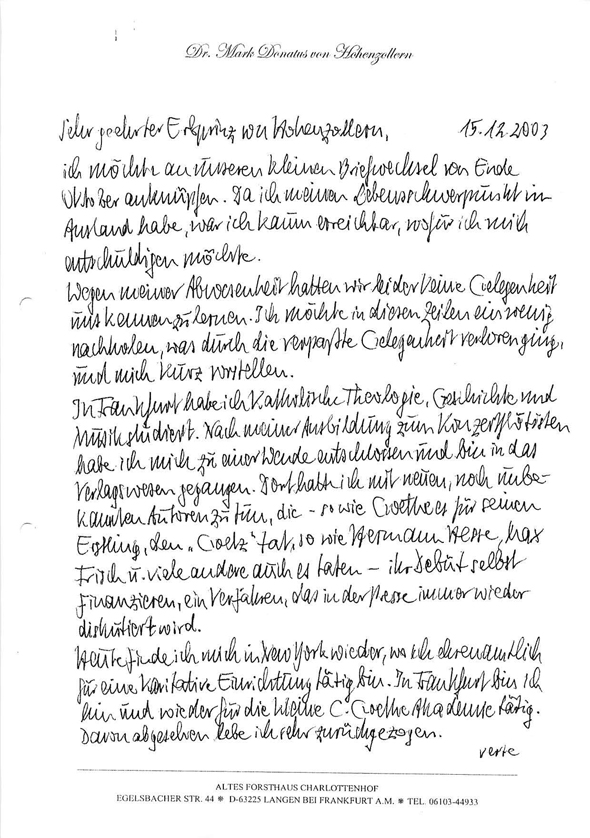 Dr. Mark Donatus von Hohenzollern
Sehr geehrter Erbprinz von Hohenzollern, 15.12.2003
ich möchte an unseren kleinen Briefwechsel von Ende
Oktober anknüpfen. Da ich meinen Lebensschwerpunkt im
Ausland habe, war ich kaum erreichbar, wofür ich mich
entschuldigen möchte.
Wegen meiner Abwesenheit hatten wir leider keine Gelegenheit
uns kennenzulernen. Ich möchte in diesen Zeilen ein wenig
nachholen, was durch die verpaßte Gelegenheit verloren ging,
und mich kurz vorstellen.
In Frankfurt habe ich Katholische Theologie, Geschichte und
Musik studiert. Nach meiner Ausbildung zum Konzertflötisten
habe ich mich zu einer Wende entschlossen und bin in das
Verlagswesen gegangen. Dort hatte ich mit neuen, noch unbe-
kannten Autoren zu tun, die - so wie Goethe es für seinen
Erstling, den „Goetz" tat, so wie Hermann Hesse, Max
Frisch u. viele andere auch es taten - ihr Debüt selbst
finanzieren, ein Verfahren, das in der Presse immer wieder
diskutiert wird.
Heute finde ich mich in New York wieder, wo ich ehrenamtlich
für eine karitative Einrichtung tätig bin. In Frankfurt bin ich
hin und wieder für die kleine C. Goethe Akademie tätig.
Davon abgesehen lebe ich sehr zurückgezogen.
verte
ALTES FORSTHAUS CHARLOTTENHOF
EGELSBACHER STR. 44 ✵ D-63225 LANGEN BEI FRANKFURT A.M. ✵ TEL. 06103-44933